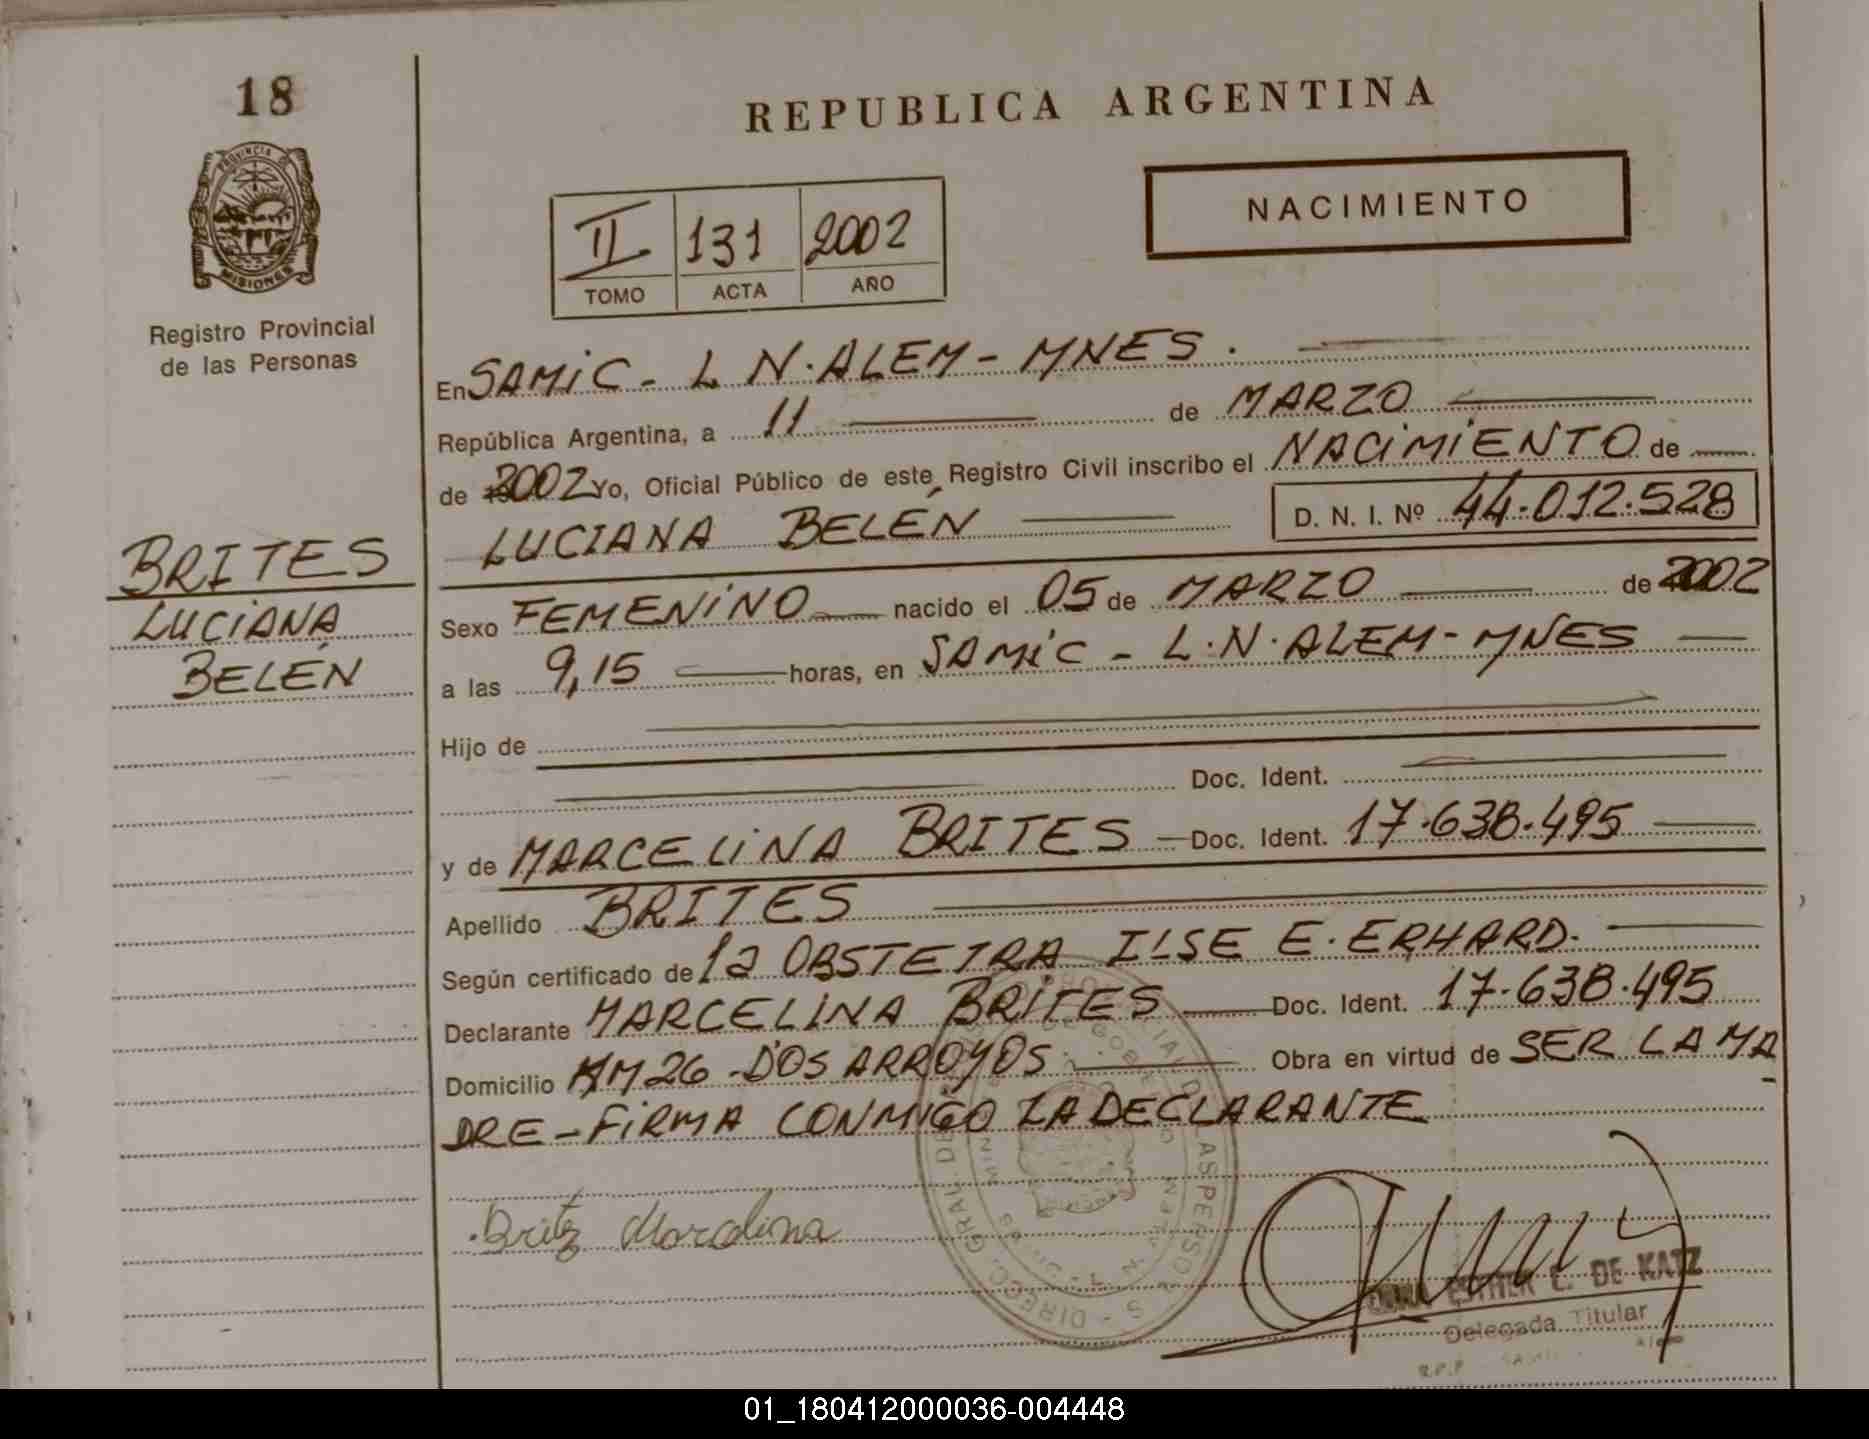 18
PROVINCIA DE
MISIONES
Registro Provincial
de las Personas
BRITES
LUCIANA
BELÉN
REPUBLICA ARGENTINA
NACIMIENTO
II 131 2002
TOMO ACTA AÑO
En SAMIC - L N. ALEM - MNES.
República Argentina, a 11 de MARZO
de 2002 Yo, Oficial Público de este Registro Civil inscribo el NACIMIENTO de
LUCIANA BELÉN D. N. I. Nº 44.012.528
Sexo FEMENINO nacido el 05 de MARZO de 2002
a las 9,15 horas, en SAMIC - L.N. ALEM - MNES
Hijo de
Doc. Ident.
y de MARCELINA BRITES Doc. Ident. 17.638.495
Apellido BRITES
Según certificado de la OBSTETRA ILSE E. ERHARD.
Declarante MARCELINA BRITES Doc. Ident. 17.638.495
Domicilio KM 26 - DOS ARROYOS Obra en virtud de SER LA MA
DRE - FIRMA CONMIGO LA DECLARANTE
Britez Marcelina
ESTHER C. DE KATZ
Delegada Titular
R.P.P.
01_180412000036-004448